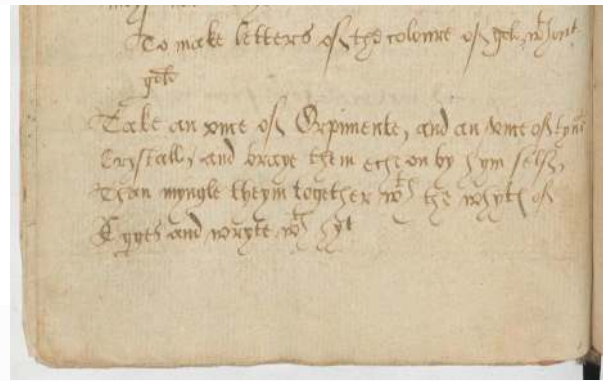 To make letters of the coloure of gold, wthout
gold
Take an unce of Orpimente, and an unce of fyne
Crystall, and braye them eche on by hym self,
Than myngle theym together wth the whyth of
Egges and wryte wth hyt